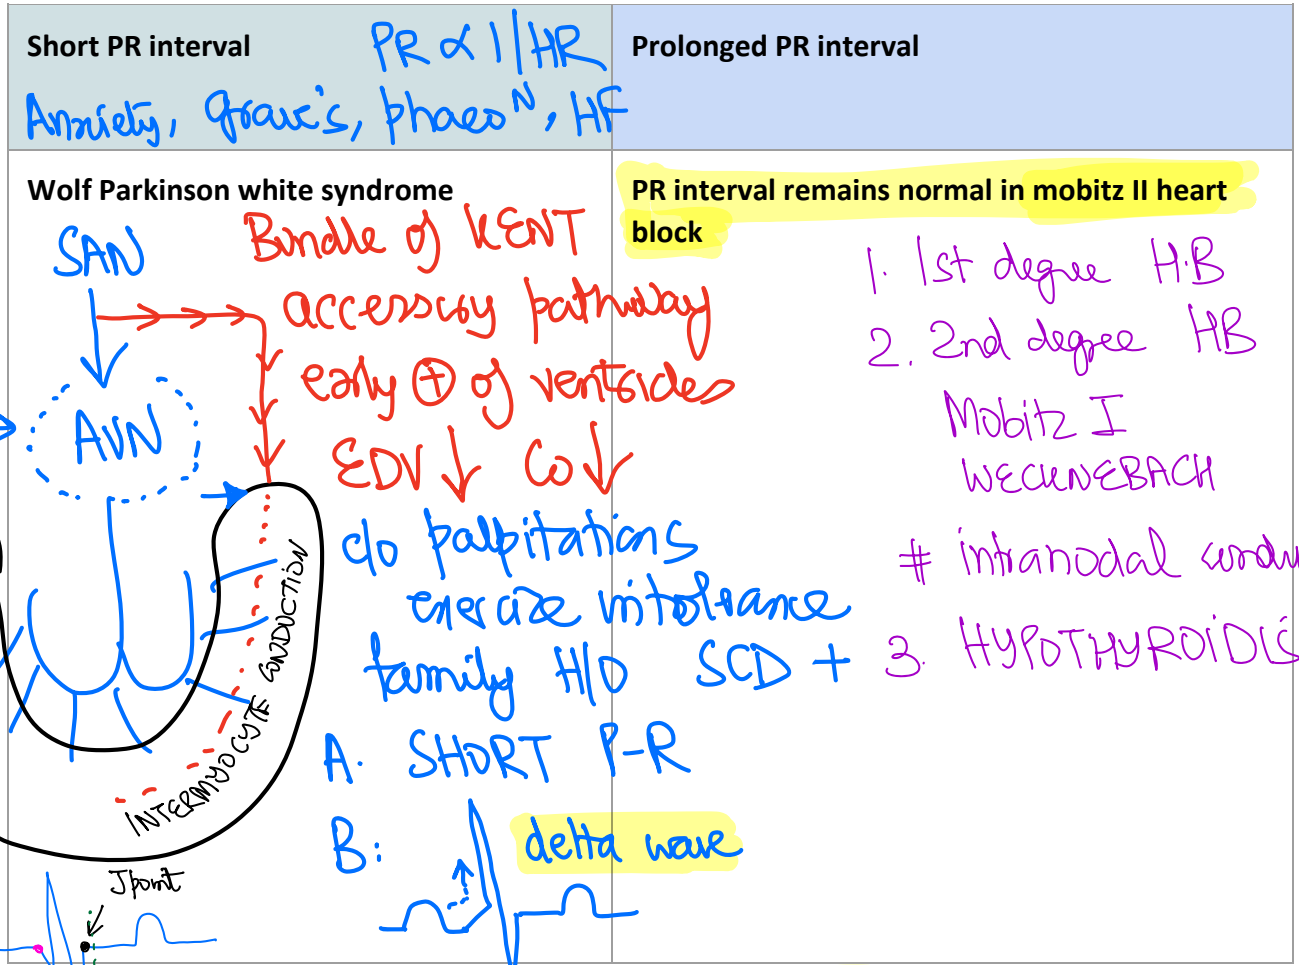 Short PR interval
PR ∝ 1/HR
Anxiety, grave's, phaeo^N, HF
Prolonged PR interval
Wolf Parkinson white syndrome
SAN
AVN
Bundle of KENT
accessory pathway
early ⊕ of ventricles
EDV ↓ CO ↓
c/o palpitations
exercize intolerance
family H/O SCD +
A. SHORT P-R
B: delta wave
INTERMYOCYTE CONDUCTION
J point
PR interval remains normal in mobitz II heart
block
1. 1st degree H.B
2. 2nd degree HB
Mobitz I
WECKNEBACH
# intranodal condu
3. HYPOTHYROIDIS